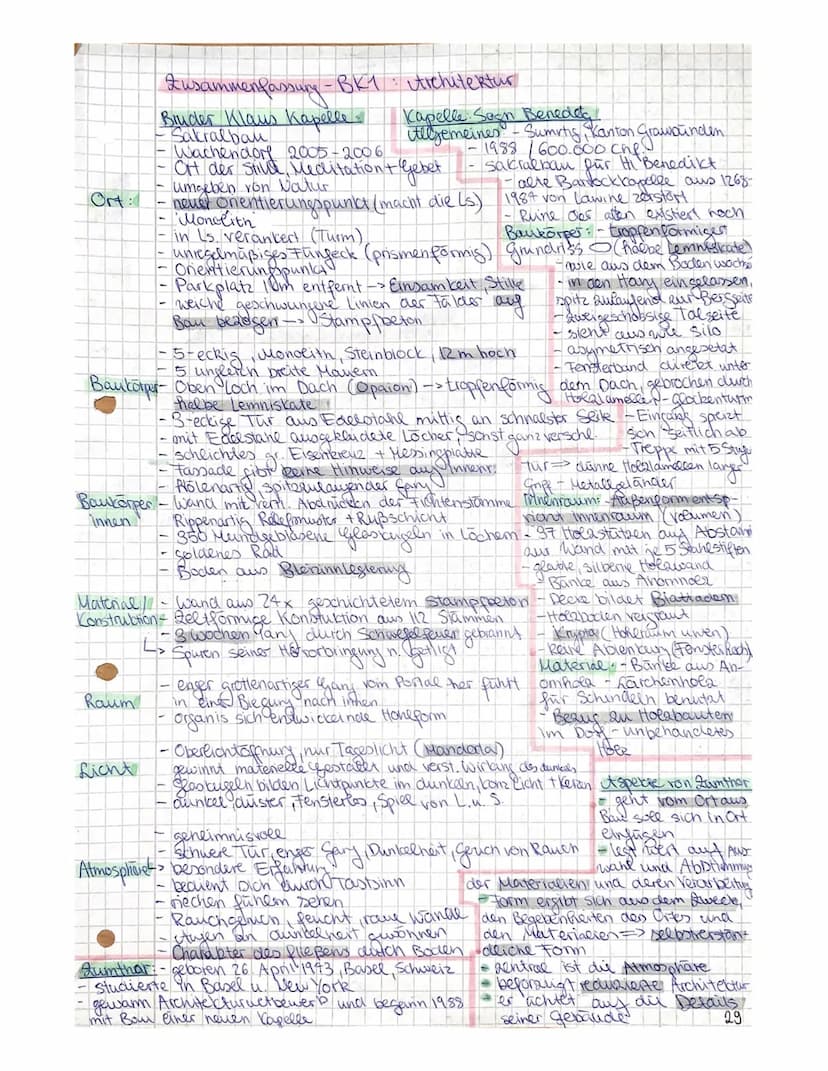 Zusammenfassung - BK1 : Architektur
Bruder Klaus Kapelle:
- Sakralbau
- Wachendorf 2005-2006
- Ort der Stille, Meditation + Gebet
- umgeben von Natur
Ort:
- neuer Orientierungspunkt (macht die Ls)
- Monolith
- in Ls. verankert (Turm)
- unregelmäßiges Fünfeck (prismenförmig)
- Orientierungspunkt
- Parkplatz 1km entfernt -> Einsamkeit, Stille
- weiche geschwungene Linien der Felder auf
Bau bezogen -> Stampfbeton
- 5-eckig, Monolith, Steinblock, 12m hoch
- 5 ungleich breite Mauern
Baukörper
- Oben Loch im Dach (Opaion) -> tropfenförmig
halbe Lemniskate
- 3-eckige Tür aus Edelstahl mittig an schmalster Seite
- mit Edelstahl ausgekleidete Löcher, sonst ganz verschl.
- schlichtes gr. Eisenkreuz + Messingplatte
- Fassade gibt keine Hinweise auf Innenr.
- Höhlenartig spitzzulaufender Gang
Baukörper innen
- Wand mit vert. Abdrücken der Fichtenstämme
Rippenartig Reliefmuster + Rußschicht
- 350 Mundgeblasene Glaskugeln in Löchern
- goldenes Rad
- Boden aus Bleizinnlegierung
Material/
Konstruktion
- Wand aus 24x geschichtetem Stampfbeton
- Zeltförmige Konstuktion aus 112 Stämmen
- 3 Wochen lang durch Schwefelfeuer gebrannt
↳ Spuren seiner Hervorbringung n. getilgt
Raum
- enger grottenartiger Gang vom Portal her führt
in einer Biegung nach innen
- organis sich entwickelnde Hohlform
Licht
- Oberlichtöffnung, nur Tageslicht (Mandorla)
gewinnt materielle Gestalt und verst. Wirkung des dunkels
- Glaskugeln bilden Lichtpunkte im dunkeln, kein Licht + Kerzen
- dunkel düster, Fensterlos, Spiel von L. u. S.
- geheimnisvoll
- schwere Tür, enger Gang, Dunkelheit, Geruch von Rauch
Atmosphäre
-> besondere Erfahrung
- bedient sich durch Tastsinn
- riechen fühlen sehen
- Rauchgeruch, feucht, raue Wände
- Augen an dunkelheit gewöhnen
- Charakter des fließens durch Boden
Zumthor:
- geboren 26. April 1943, Basel, Schweiz
- studierte in Basel u. New York
- gewann Architekturwettbewerb und begann 1988
mit Bau einer neuen Kapelle
Kapelle Sogn Benedetg
Allgemeines - Sumvitg, Kanton Graubünden
- 1988 / 600.000 CHF
- sakralbau für Hl. Benedikt
- alte Barockkapelle aus 1268-
1984 von Lawine zerstört
- Ruine der alten existiert noch
Baukörper: - tropfenförmiger
Grundriss (halbe Lemniskate)
- wie aus dem Boden wächs
- in den Hang eingelassen,
spitz zulaufend zur Bergseite
- zweigeschossige Talseite
- sieht aus wie Silo
- asymetrisch angesetzt
- Fensterband direkt unter
dem Dach, gebrochen durch
Holzlamellen - Glockenturm
- Eingang spreizt
sich seitlich ab
- Treppe mit 5 Stuge
Tür => dünne Holzlamellen langer
Griff - Metallgeländer
Innenraum: - Außenform entsp-
richt Innenraum (Volumen)
- 37 Holzstützen auf Abstand
zur Wand mit je 5 Stahlstiften
- glatte, silberne Holzwand
- Bänke aus Ahornholz
- Decke bildet Blattadern
- Holzboden
- Krypta (Hohlraum unten)
- keine Ablenkung (Fenster hoch)
Material: - Bänke aus Ah-
ornholz - Lärchenholz
für Schindeln benutzt
- Bezug zu Holzbauten
im Dorf - unbehandeltes
Holz
Aspekte von Zumthor
- geht vom Ort aus
Bau soll sich in Ort
einfügen
- legt Wert auf Aus-
wahl und Abstimmung
der Materialien und deren Verarbeitung
- Form ergibt sich aus dem Zweck,
den Begebenheiten des Ortes und
den Materialien => selbstverstän-
dliche Form
- zentral ist die Atmosphäre
- bevorzugt reduzierte Architektur
- er achtet auf die Details
seiner Gebäude
29